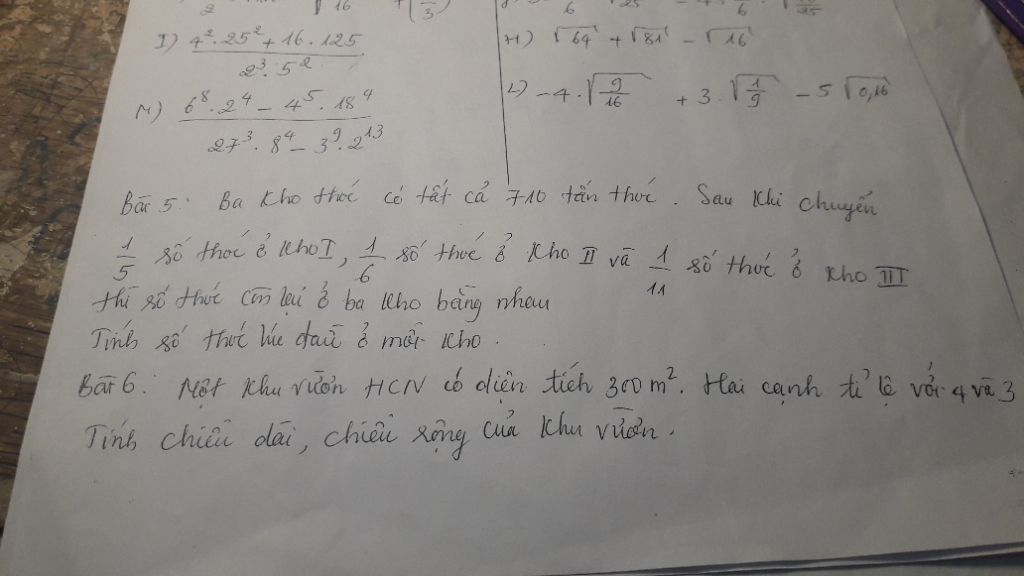 I) (4² · 25² + 16 · 125) / (2³ · 5²)
M) (6⁸ · 2⁴ - 4⁵ · 18⁴) / (27³ · 8⁴ - 3⁹ · 2¹³)
H) √64 + √81 - √16
L) -4 · √(9/16) + 3 · √(1/9) - 5 √0,16
Bài 5: Ba kho thóc có tất cả 710 tấn thóc. Sau khi chuyển
1/5 số thóc ở kho I, 1/6 số thóc ở kho II và 1/11 số thóc ở kho III
thì số thóc còn lại ở ba kho bằng nhau
Tính số thóc lúc đầu ở mỗi kho.
Bài 6: Một khu vườn HCN có diện tích 300 m². Hai cạnh tỉ lệ với 4 và 3
Tính chiều dài, chiều rộng của khu vườn.